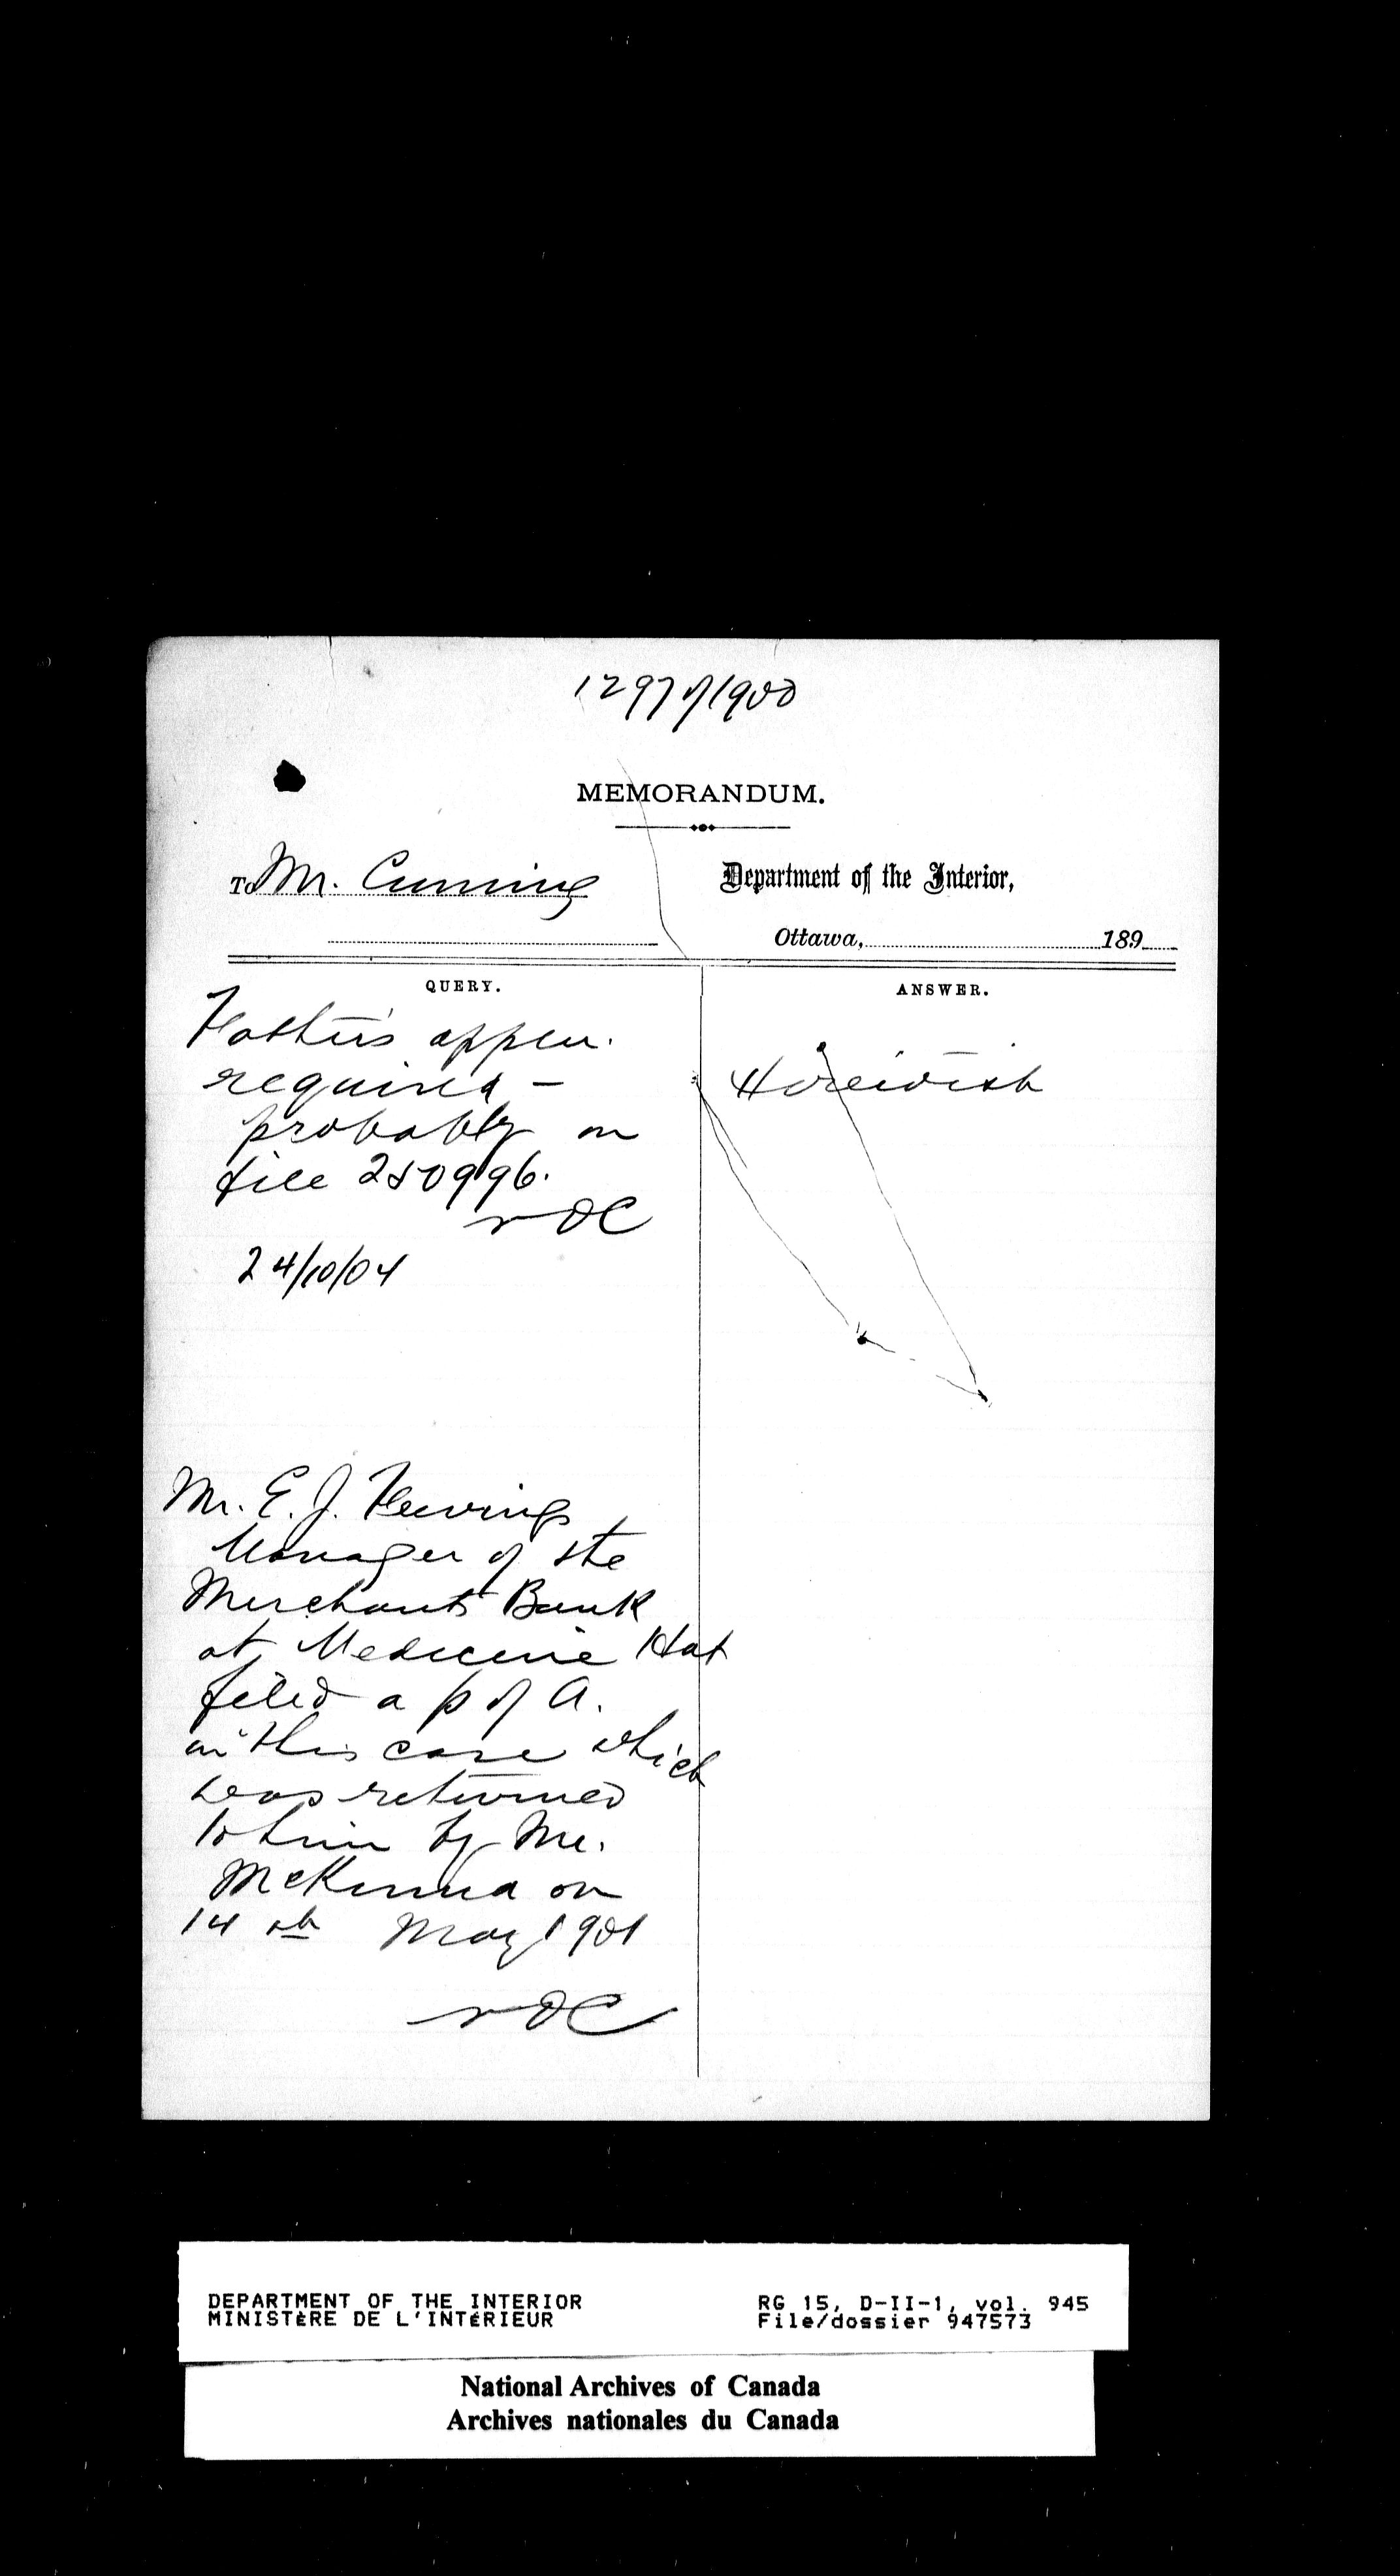 1297 of 1900
MEMORANDUM.
To Mr. Cuming
Department of the Interior,
Ottawa, 189
QUERY.
ANSWER.
Father's appln.
required –
probably on
file 250996.
NOC
24/10/04
Herewith
Mr. E. J.
Manager of the
Merchants Bank
at Medicine Hat
filed a p of A.
in this case which
was returned
to him by Mr.
McKenna on
14th May 1901
NOC
DEPARTMENT OF THE INTERIOR
MINISTÈRE DE L'INTÉRIEUR
RG 15, D-II-1, vol. 945
File/dossier 947573
National Archives of Canada
Archives nationales du Canada